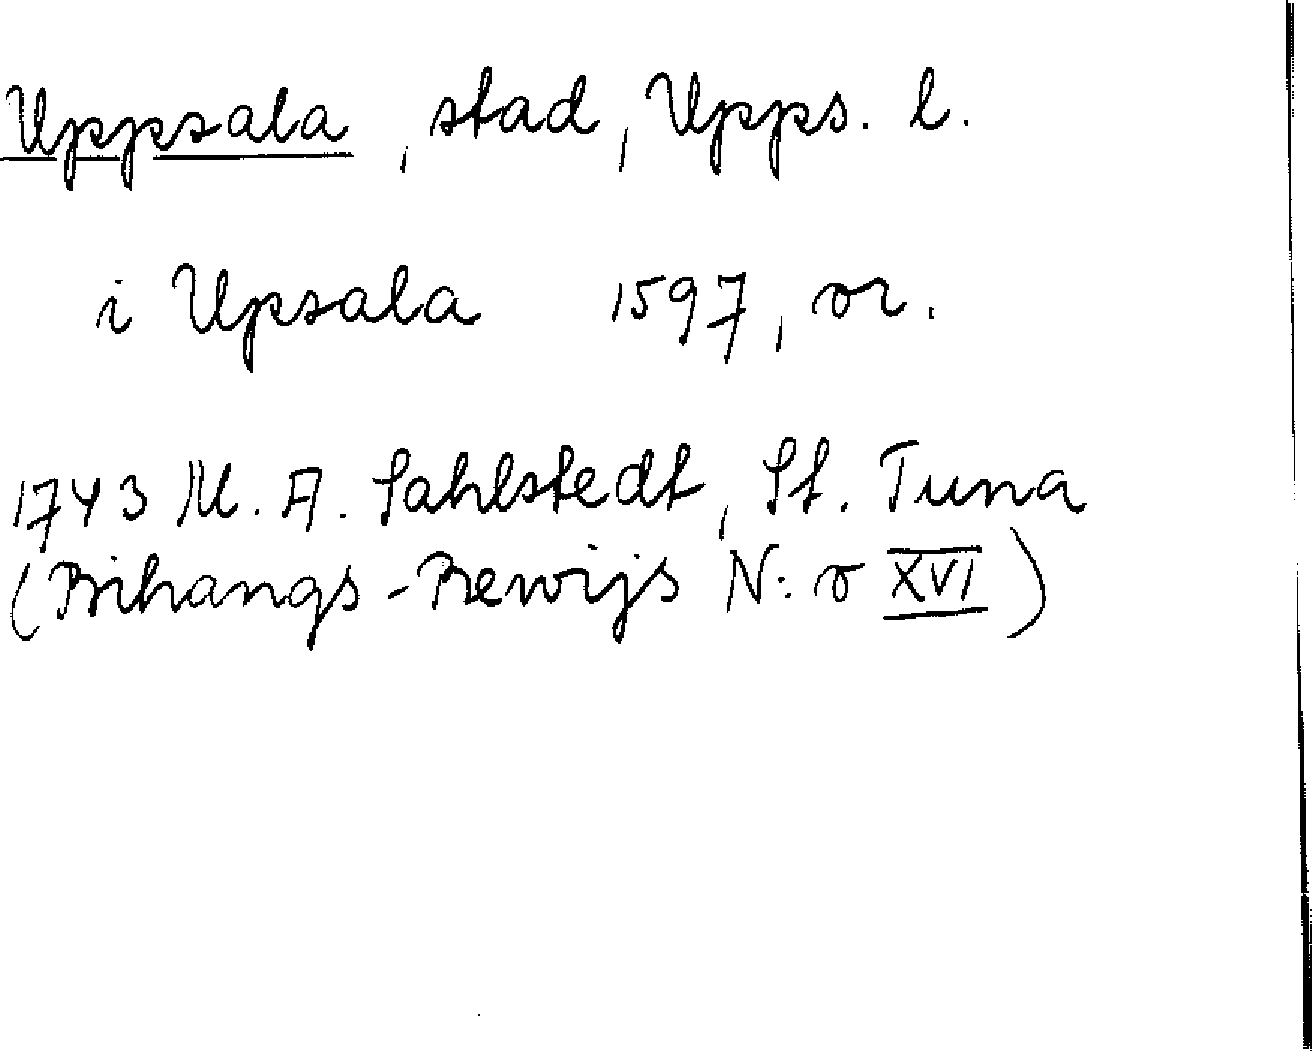 Uppsala, stad, Upps. l.
i Upsala 1597, or.
1743 M. A. Sahlstedt, St. Tuna
(Bihangs-Bewijs N:o XVI)